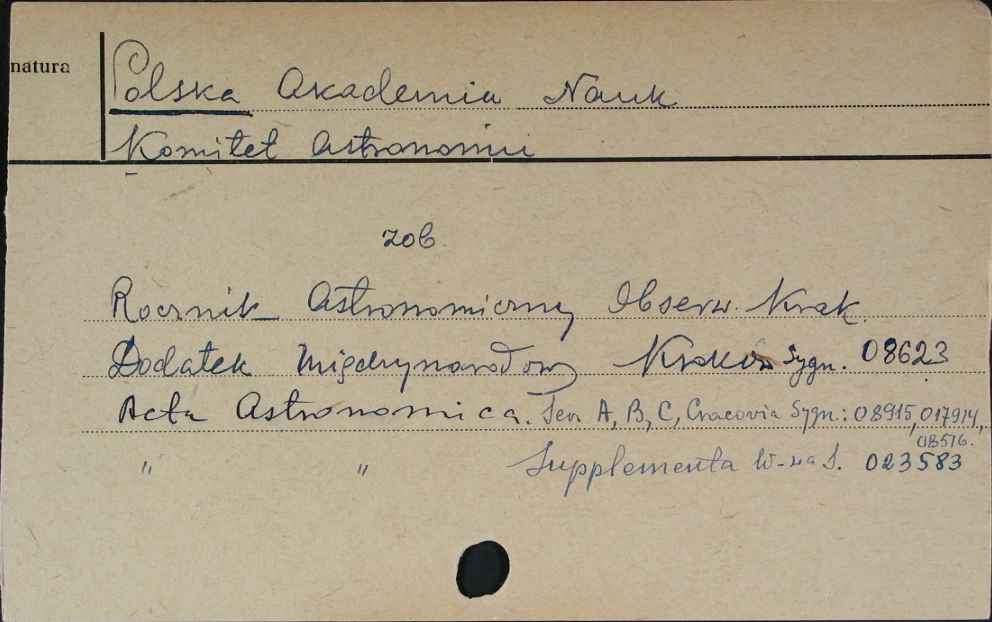 natura
Polska Akademia Nauk
Komitet Astronomii
zob.
Rocznik Astronomiczny Obserw. Krak.
Dodatek Międzynarodowy Kraków Sygn. 08623
Acta Astronomica. Ser. A, B, C, Cracovia Sygn.: 08915, 017914,
08516.
" " Supplementa W-wa S. 023583